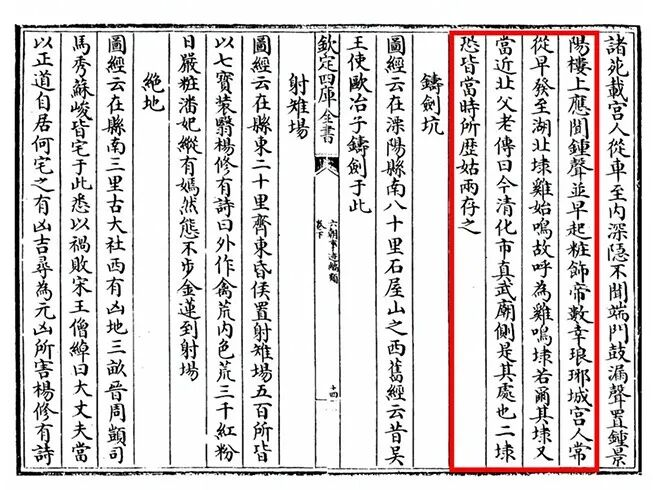 諸苑載宮人從車至内深隠不聞端門鼓漏聲置鍾景
陽樓上應聞鍾聲並早起粧飾帝數幸琅琊城宮人常
從早發至湖北埭雞始鳴故呼為雞鳴埭若爾其埭又
當近北父老傳曰今清化市真武廟側是其處也二埭
恐皆當時所歴姑兩存之
鑄劍坑
圖經云在溧陽縣南八十里石屋山之西舊經云昔吳
王使歐冶子鑄劍于此
欽定四庫全書
六朝事迹編類
卷下
十四
射雉場
圖經云在縣東二十里齊東昏侯置射雉場五百所皆
以七寶装翳楊修有詩曰外作禽荒内色荒三千紅粉
日嚴粧潘妃縱有嫣然態不步金蓮到射場
絶地
圖經云在縣南三里古大社西有凶地三畝晉周顗司
馬秀蘇峻皆宅于此悉以禍敗宋王僧綽曰大丈夫當
以正道自居何宅之有凶吉尋為元凶所害楊修有詩